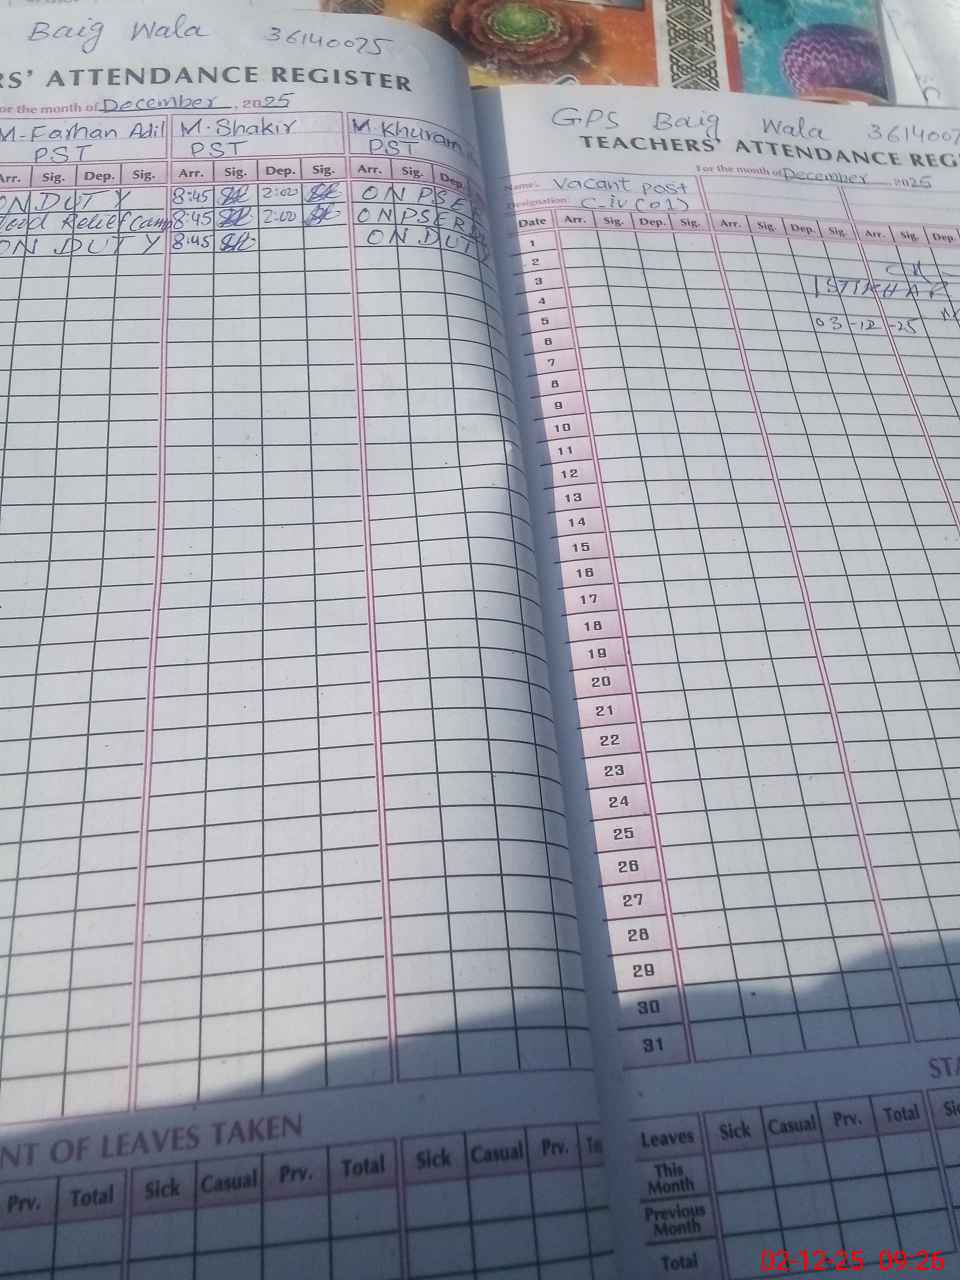 Baig Wala 36140025
RS' ATTENDANCE REGISTER
For the month of December, 2025
M-Farhan Adil M. Shakir M. Khuram
PST PST PST
Arr. Sig. Dep. Sig. Arr. Sig. Dep. Sig. Arr. Sig. Dep.
ON DUTY 8:45 2:00 ON PSE
Relief Camp 8:45 2:00 ON PSER
ON DUTY 8:45 ON DUTY
NT OF LEAVES TAKEN
Prv. Total Sick Casual Prv. Total Sick Casual Prv.
GPS Baig Wala 3614007
TEACHERS' ATTENDANCE REG
For the month of December 2025
Name: Vacant post
Designation: C-iv (01)
Date Arr. Sig. Dep. Sig. Arr. Sig. Dep. Sig. Arr. Sig. Dep.
1
2
3
4
03-12-25
5
6
7
8
9
10
11
12
13
14
15
16
17
18
19
20
21
22
23
24
25
26
27
28
29
30
31
STA
Leaves Sick Casual Prv. Total Sic
This Month
Previous Month
Total
02-12-25 09:26